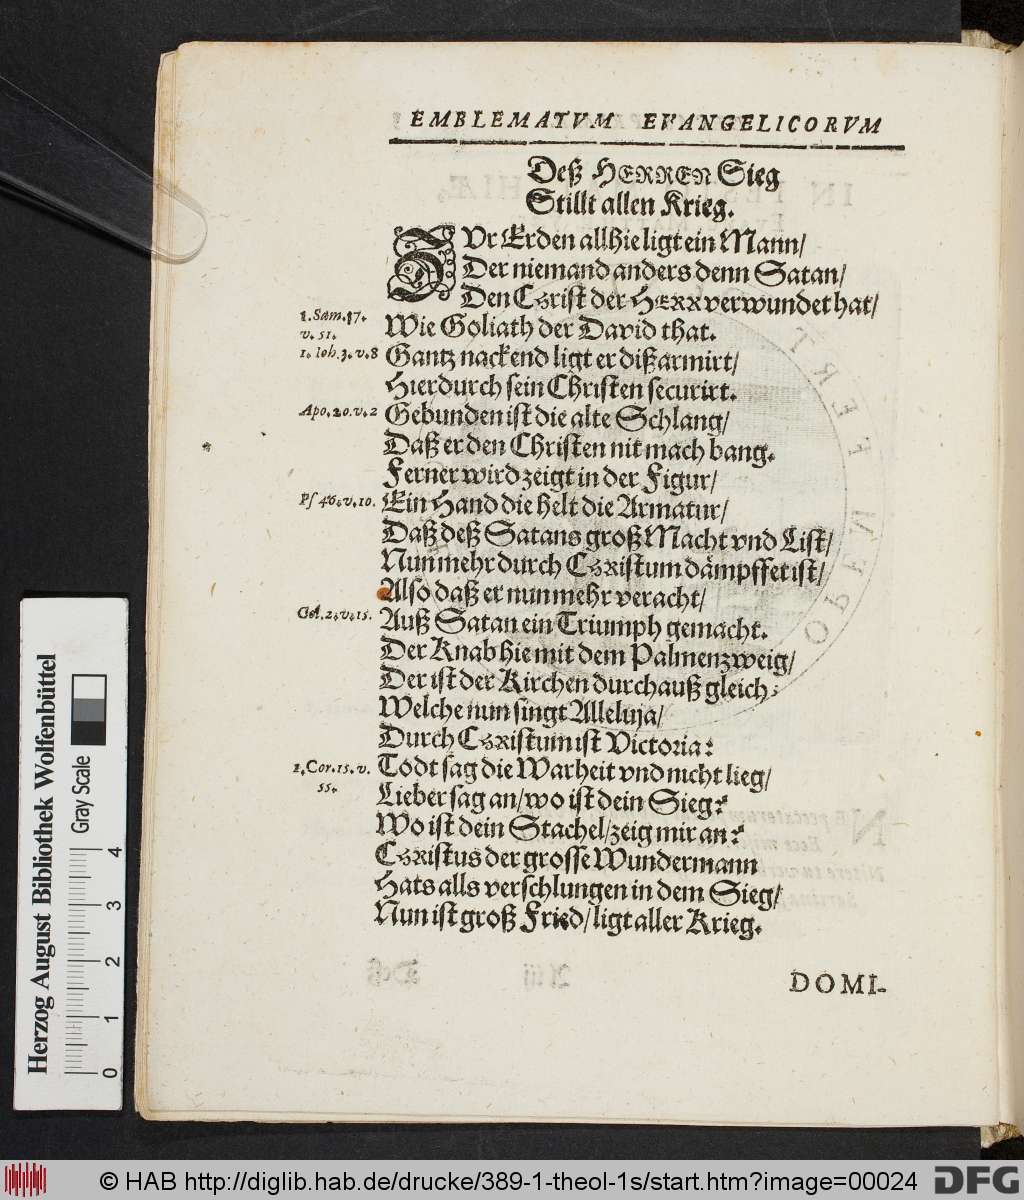 EMBLEMATVM EVANGELICORVM
Deß HERREN Sieg
Stillt allen Krieg.
ZVr Erden allhie ligt ein Mann/
Der niemand anders denn Satan/
Den Christ der HERR verwundet hat/
1. Sam. 17.
v. 51.
Wie Goliath der David that.
1. Ioh. 3. v. 8
Gantz nackend ligt er dißarmirt/
Hierdurch sein Christen securirt.
Apo. 20. v. 2
Gebunden ist die alte Schlang/
Daß er den Christen nit mach bang.
Ferner wird zeigt in der Figur/
Ps 46. v. 10.
Ein Hand die helt die Armatur/
Daß deß Satans groß Macht vnd List/
Nunmehr durch CHRistum dämpffet ist/
Also daß er nunmehr veracht/
Col. 2. v. 15.
Auß Satan ein Triumph gemacht.
Der Knab hie mit dem Palmenzweig/
Der ist der Kirchen durchauß gleich:
Welche nun singt Alleluja/
Durch CHRistum ist Victoria:
1. Cor. 15. v.
55.
Todt sag die Warheit vnd nicht lieg/
Lieber sag an/ wo ist dein Sieg?
Wo ist dein Stachel/ zeig mir an?
CHRistus der grosse Wundermann
Hats alls verschlungen in dem Sieg/
Nun ist groß Fried/ ligt aller Krieg.
DOMI-
Herzog August Bibliothek Wolfenbüttel
Gray Scale
0 1 2 3 4
© HAB http://diglib.hab.de/drucke/389-1-theol-1s/start.htm?image=00024
DFG